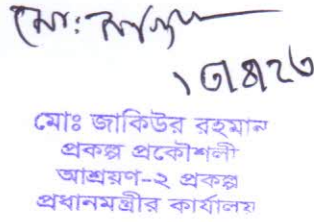 মোঃ জাকিউর রহমান
প্রকল্প প্রকৌশলী
আশ্রয়ণ-২ প্রকল্প
প্রধানমন্ত্রীর কার্যালয়